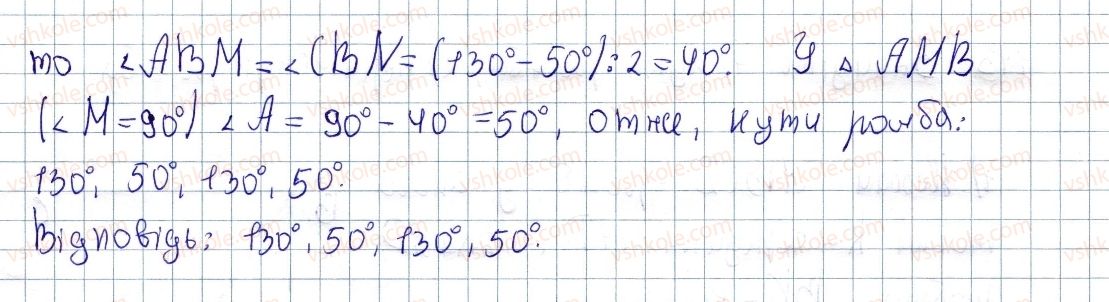 то ∠ABM = ∠CBN = (130° - 50°) : 2 = 40°. У △ AMB
(∠M = 90°) ∠A = 90° - 40° = 50°, отже, кути ромба:
130°, 50°, 130°, 50°.
Відповідь: 130°, 50°, 130°, 50°.